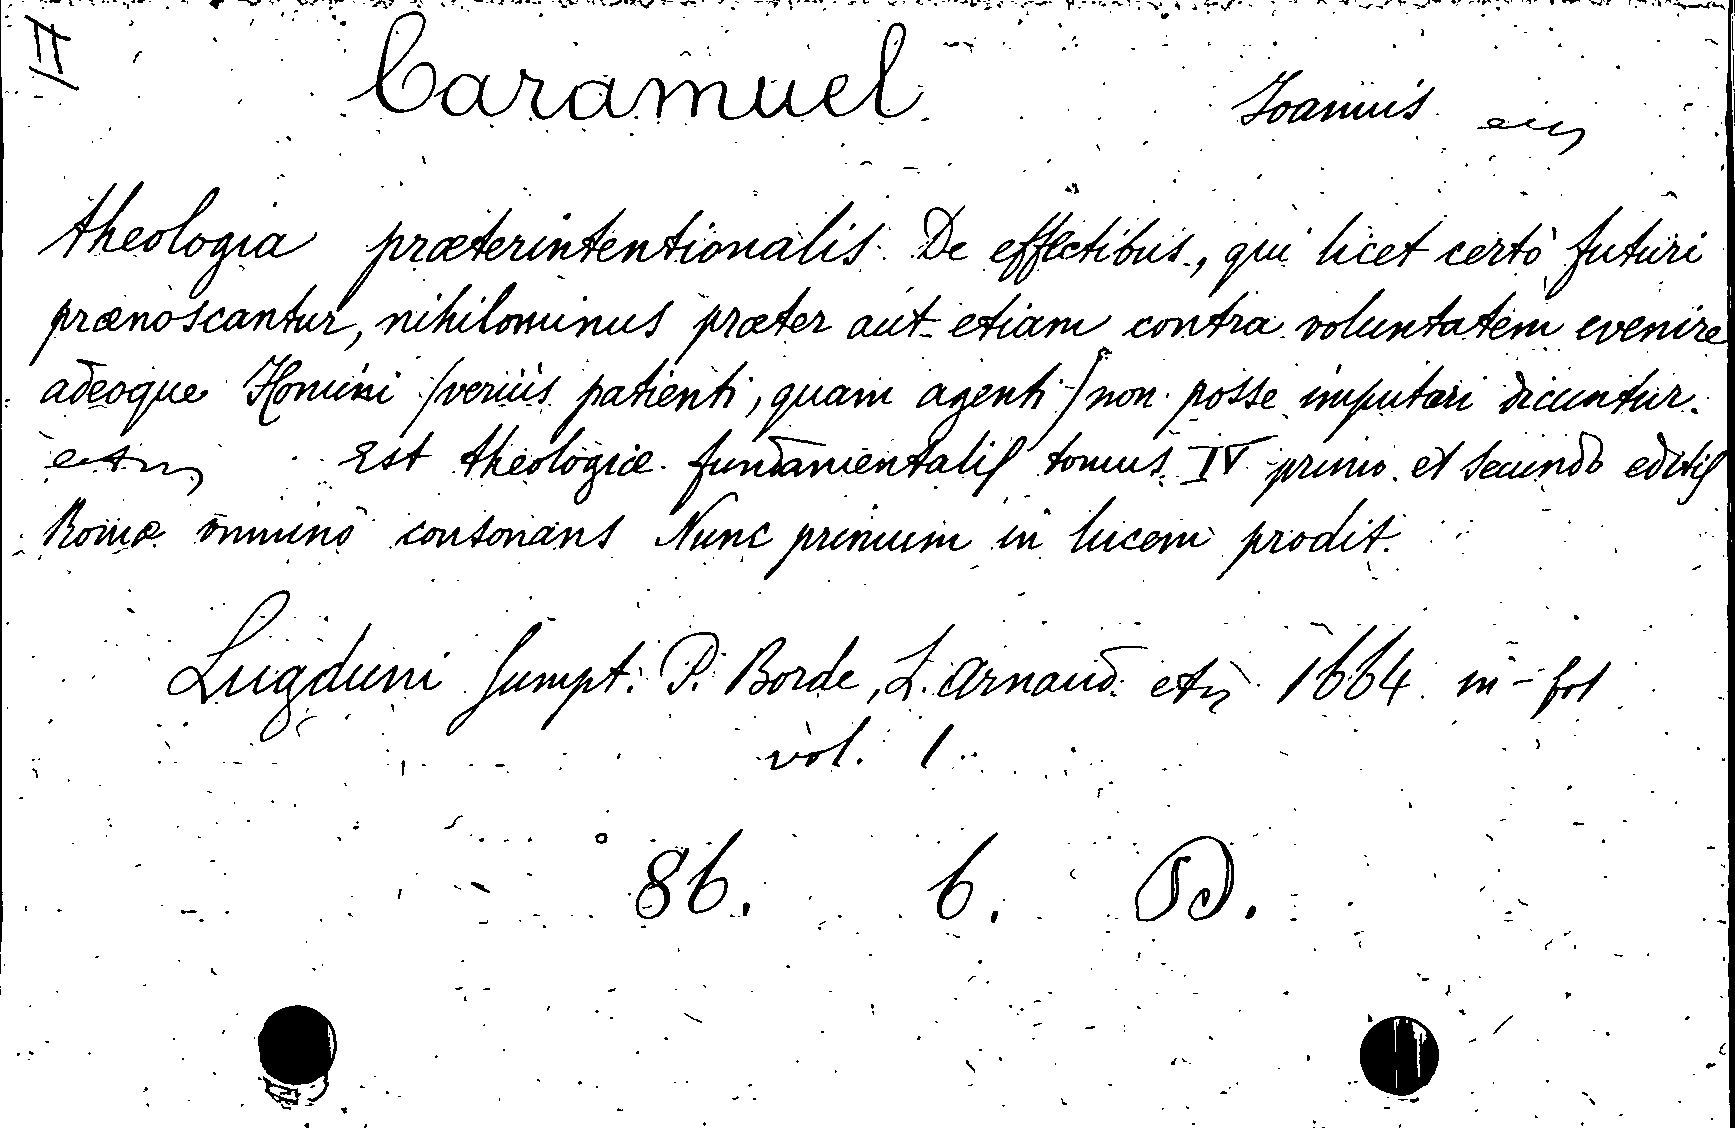 II Caramuel Ioannis
theologia præterintentionalis. De effectibus, qui licet certò futuri
prænoscantur, nihilominus præter aut etiam contra voluntatem evenire
adeoque Homini (verius patienti, quam agenti) non posse imputari dicuntur.
Est theologiæ fundamentalis tomus IV primo et secundo editis
Romæ omninò consonans Nunc primum in lucem prodit.
Lugduni Sumpt. P. Borde, L. Arnaud. etc 1664 in-fol
vol. 1.
86. 6. D.